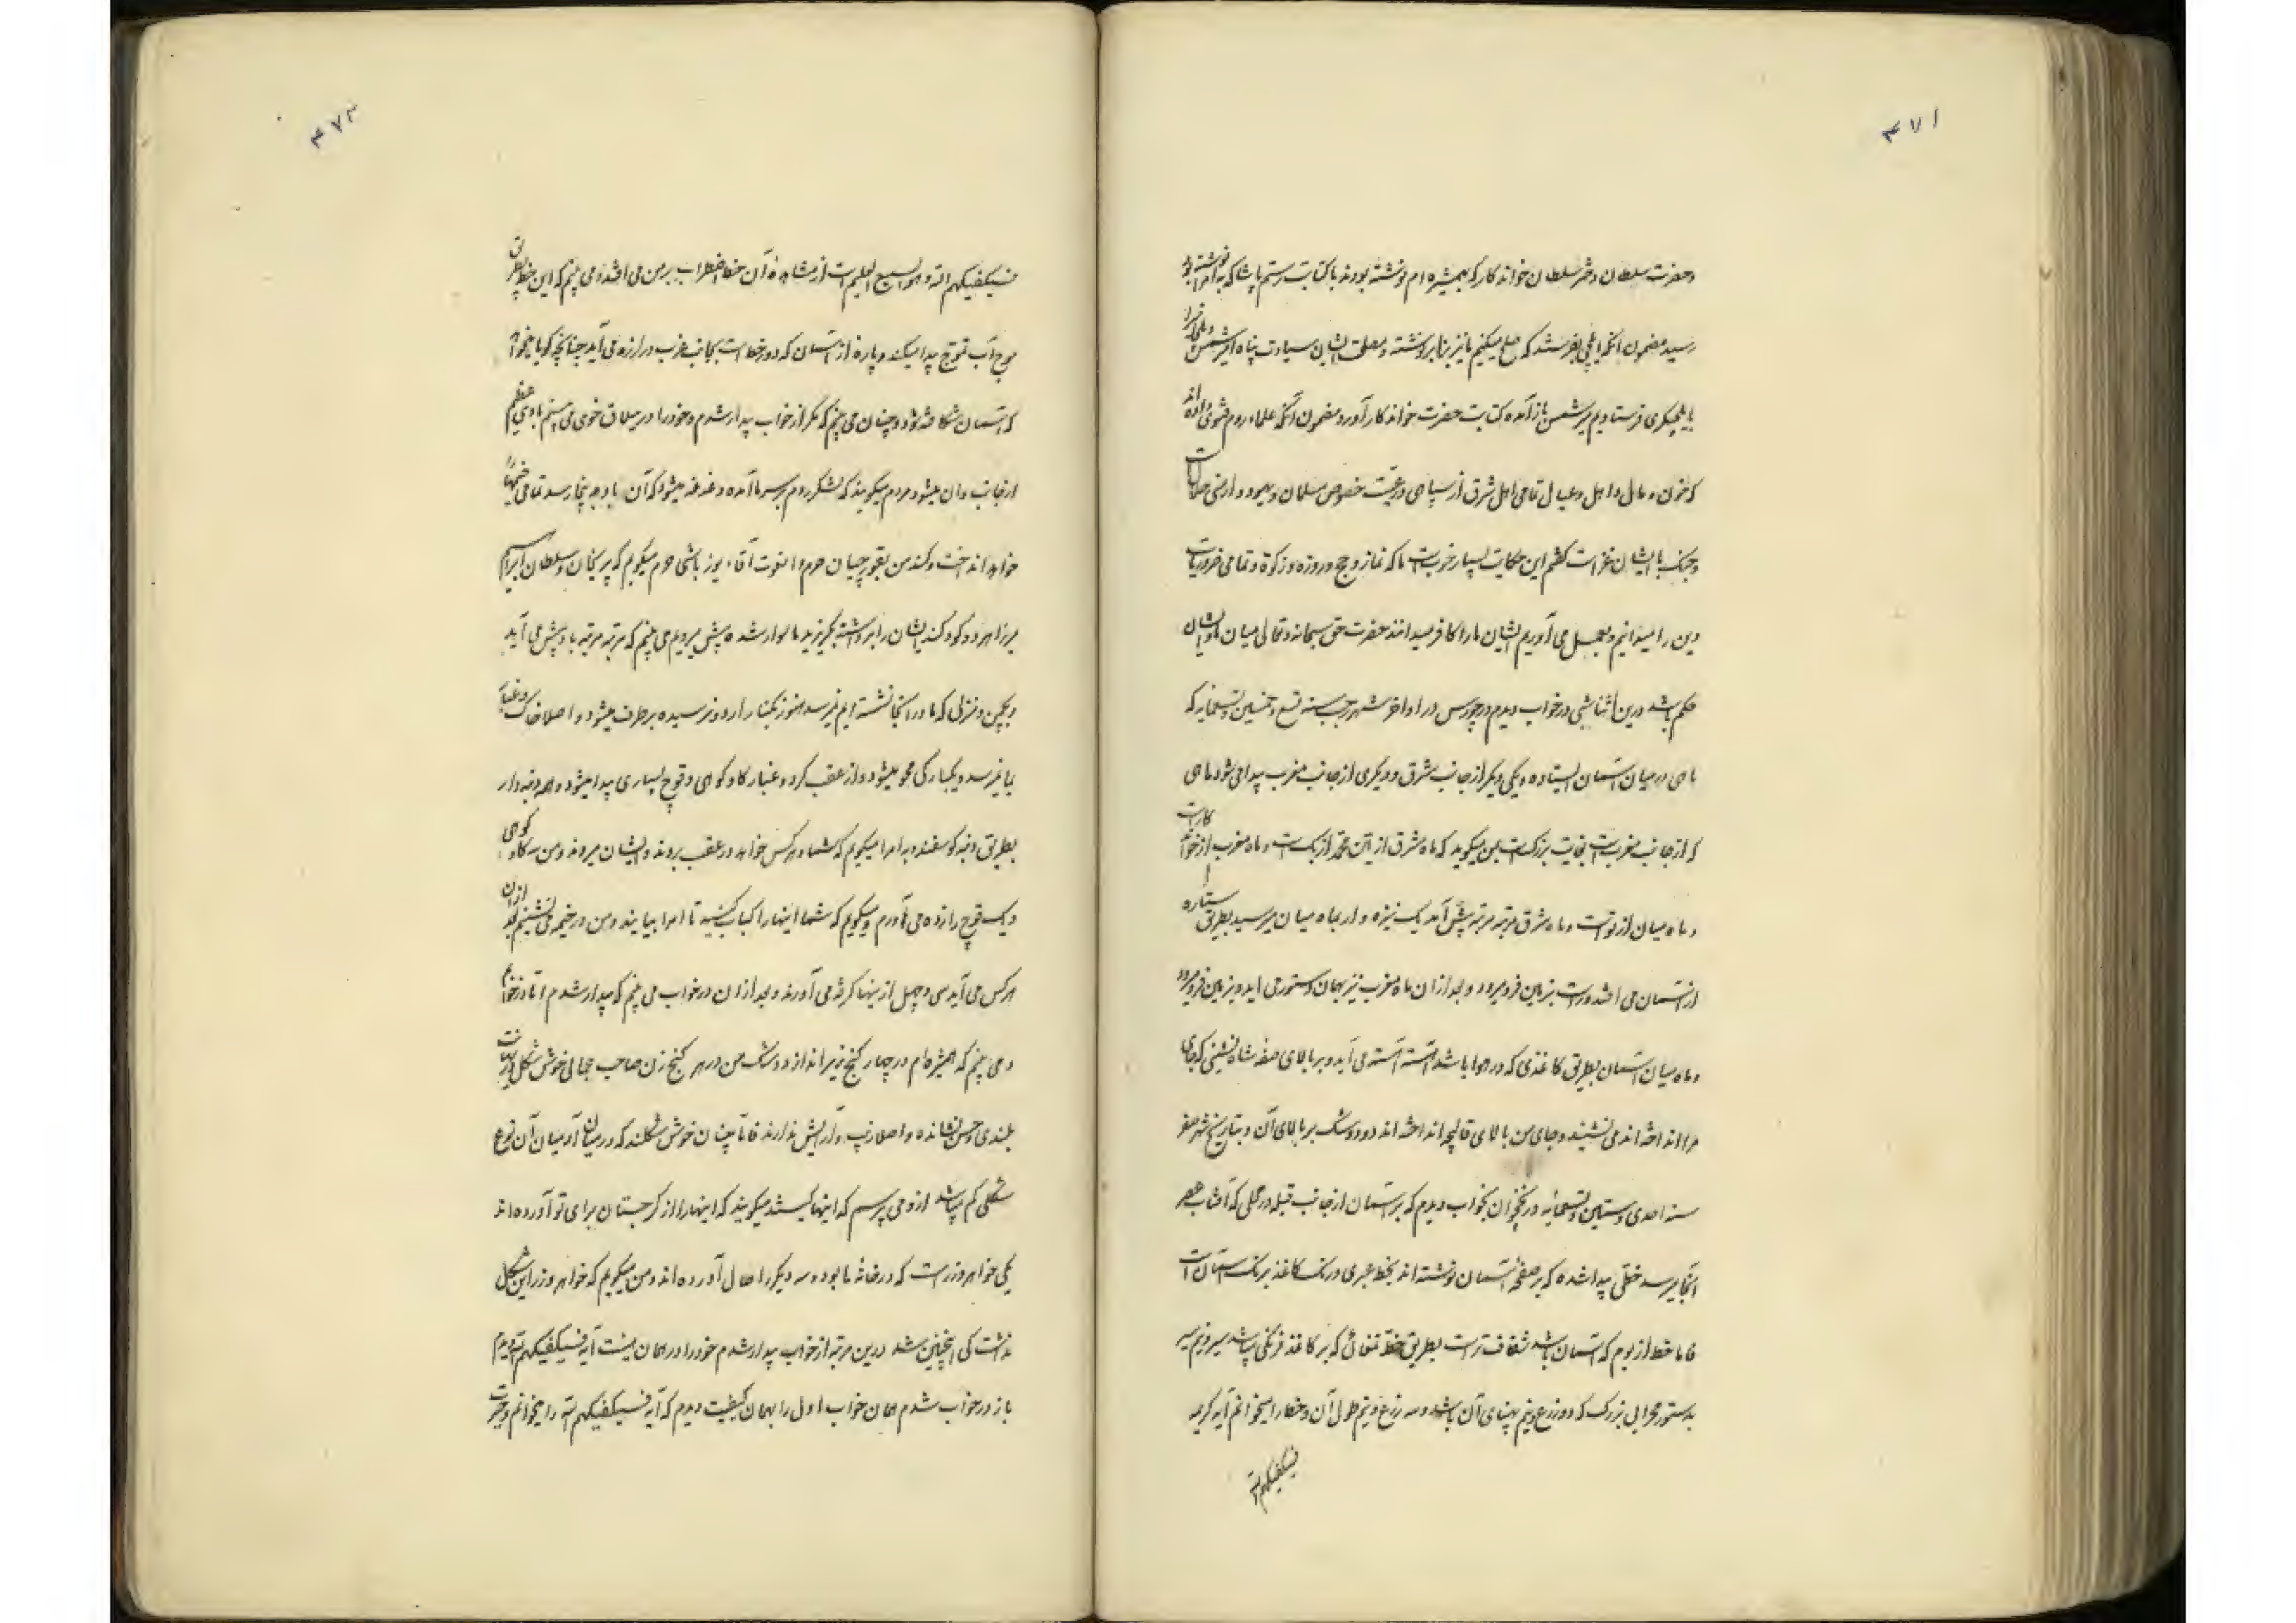 ۴۷۱
و حضرت سلطان دختر سلطان خواندکار که بهمشیره‌ام نوشته بودند با کتابت رستم پاشا که به امرا نوشته بود
رسید مضمون آنکه ایلچی بفرستند که صلح میکنیم ما نیز بنا بر نوشته و مصلحت ایشان سیادت پناه امیر شمس‌الدین را
بایلچیگری فرستادیم میر شمس باز آمده کتابت حضرت خواندکار آورد مضمون آنکه علماء روم فتوی داده اند
که خون و مال و اهل و عیال تمامی اهل شرق از سپاهی و رعیت خصوص مسلمان و یهود و ارمنی حلالست
و جنگ با ایشان غزاست گفتم این حکایت بسیار خوبست ما که نماز و حج و روزه و زکوة و تمامی ضروریات
دین را میدانیم و بعمل می آوریم ایشان ما را کافر میدانند حضرت حق سبحانه و تعالی میان ما و ایشان
حکم باشد درین اثنا شبی در خواب دیدم در چورس در اواخر شهر رجب سنه تسع و خمسین و تسعمایه که
ماهی در میان آسمان ایستاده و یکی دیگر از جانب شرق و دیگری از جانب مغرب پیدا می شود ماهی
که از جانب مغربست بغایت بزرگست بمن میگوید که ماه شرق از دین محمد ازبک است و ماه مغرب از خواندکارست
و ماه میان از توست و ماه شرق مرتبه مرتبه پیش آمد یک نیزه وار بماه میان میرسید بطریق ستاره
از آسمان می افتد و راست بزمین فرو میرود و بعد از آن ماه مغرب نیز بهمان دستور می آید و بزمین فرو میرود
و ماه میان آسمان بطریق کاغذی که در هوا باشد آهسته آهسته می آید و بر بالای صفه شاه نشینی که جای
مرا انداخته اند می نشیند و جای من بالای قالیچه انداخته اند دو دوشک بر بالای آن و بتاریخ شهر صفر
سنه احدی و ستین و تسعمائه در نخجوان بخواب دیدم که بر آسمان از جانب قبله در محلی که آفتاب عصر
آنجا میرسد خطی پیدا شده که بر صفحه آسمان نوشته اند بخط عبری و رنگ کاغذ برنگ آسمان است
فاما خط از بوم که آسمان باشد شفاف تر است بطریق خط نغائی که بر کاغذ فرنگی باشد سر و نیم سر
بدستور محرابی بزرگ که دو زرع و نیم پهنای آن باشد و سه زرع و نیم طول آن و خط را میخوانم آیه کریمه
فسیکفیکهم الله
۴۷۲
فسیکفیکهم الله و هو السمیع العلیم است از مشاهده آن خط اضطراب بر من می افتد و می بینم که این خط بطریق
موج آب تموج پیدا میکند و پاره از آسمان که دور خط است بجانب غرب در لرزه می آید چنانچه گویا میخواهد
که آسمان شکافته شود و چنان می بینم که مگر از خواب بیدار شدم و خود را در ییلاق خوی می بینم بادی عظیم
از جانب وان میشود مردم میگویند که لشکر روم بر سر ما آمده دغدغه میشود که آن باد به اینجا رسد تمامی خیمها را
خواهد انداخت و کند من بقورچیان حرم و الغوت آقاء یوزباشی حرم میگویم که پریخان و سلطان ابراهیم
میرزا هر دو کودکند ایشان را برداشته بگریزید ما سوار شده پیش میرویم می بینم که مرتبه مرتبه باد پیش می آید
و بچمن و منزلی که ما در آنجا نشسته ایم نمیرسد هنوز بکنار اردو نرسیده بر طرف میشود و اصلا خاک و غبار
بما نمیرسد و یکبارگی محو میشود و از عقب گرد و غبار گاو کوهی و قوچ بسیاری پیدا میشود و همه دنبه دار
بطریق دنبه گوسفند و به امرا میگویم که شما و هر کس خواهد در عقب بروند و ایشان میروند و من سه گاو کوهی
و یک قوچ را زده می آورم و میگویم که شما اینها را کباب کنید تا امرا بیایند و من در خیمه می نشینم بعد از آن
هر کس می آید سی و چهل از اینها گرفته می آورند و بعد از آن در خواب می بینم که بیدار شدم اما در خوابم
و می بینم که همشیره‌ام در چهار کنج زیر انداز دوشک من در هر کنج زن صاحب جمالی خوش شکل در نهایت
بلندی و حسن نشانده و اصلا زیب و آرایش ندارند فاما چنان خوش شکلند که در میان آدمیان آن نوع
شکلی کم میباشد ازو می پرسم که اینها کیستند میگویند که اینها را از گرجستان برای تو آورده اند
یکی خواهر وزر است که در خانه ما بود و سه دیگر را حال آورده اند و من میگویم که خواهر وزر این شکل
نداشت کی اینچنین شد درین مرتبه از خواب بیدار شدم خود را در همان نیت آیه فسیکفیکهم الله دیدم
باز در خواب شدم همان خواب اول را بهمان کیفیت دیدم که آیه فسیکفیکهم الله را میخوانم